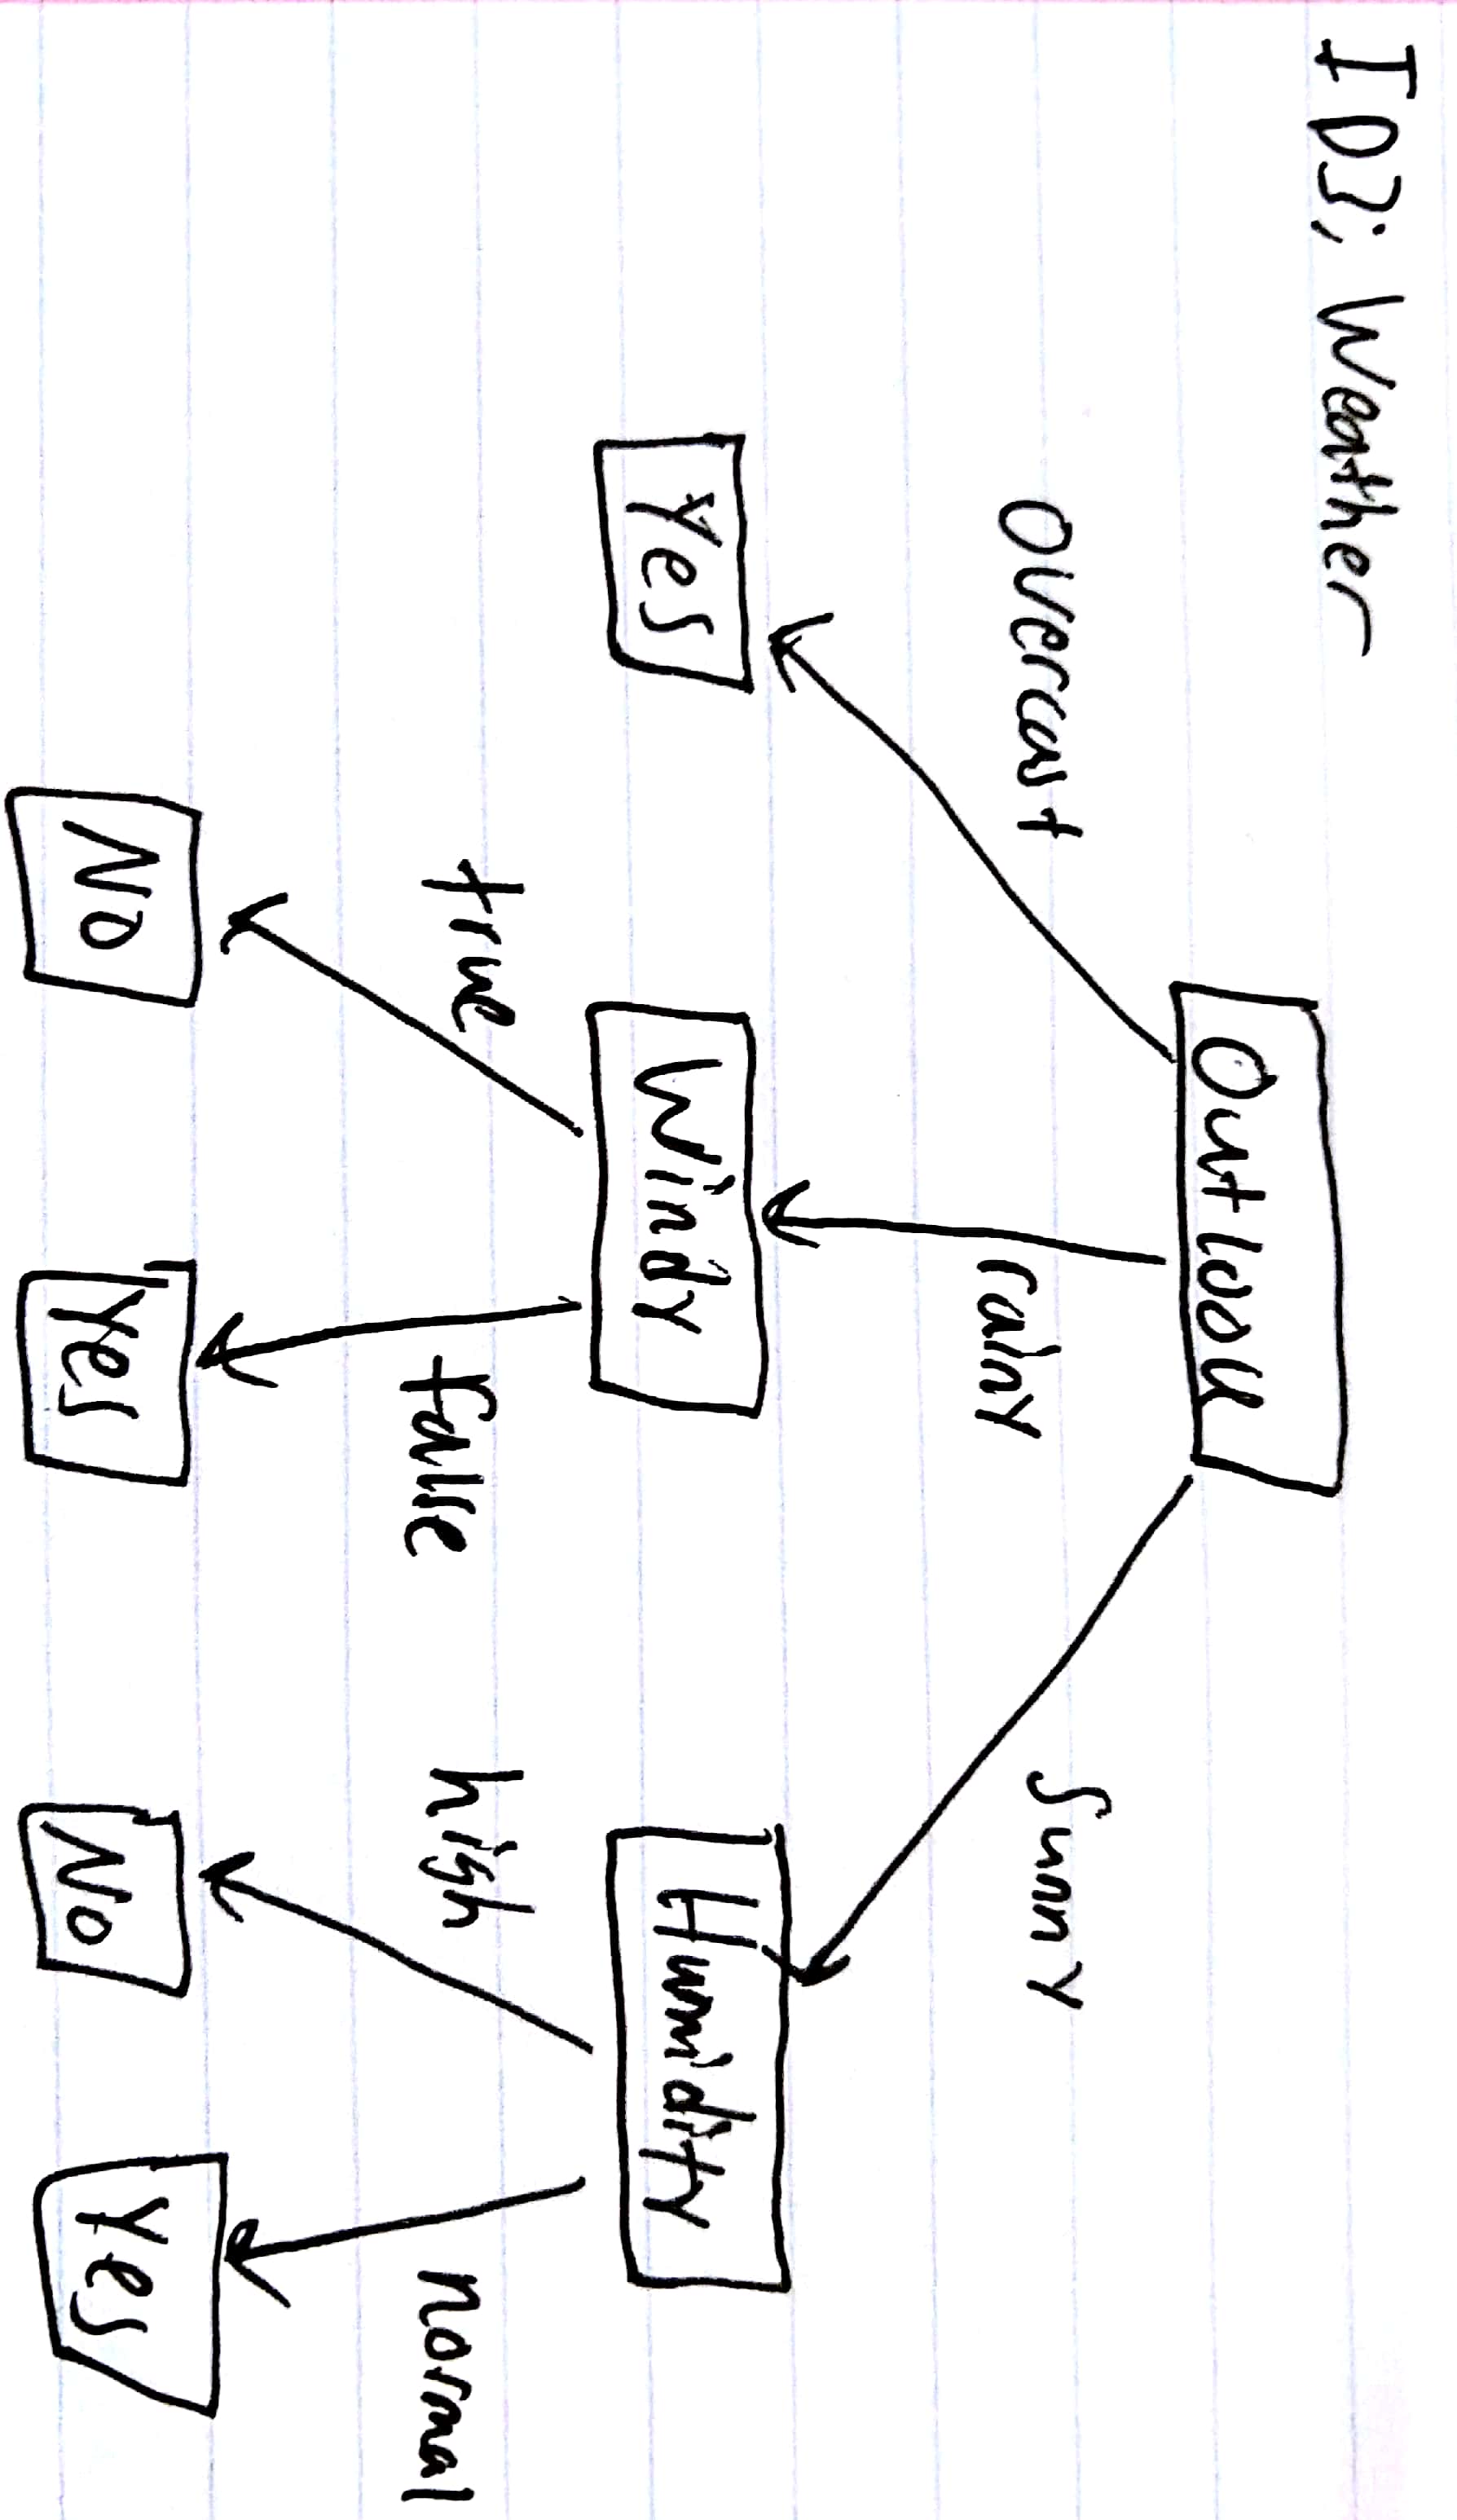 ID3: Weather
Outlook
Overcast
rainy
Sunny
Yes
Windy
Humidity
true
false
high
normal
No
Yes
No
Yes